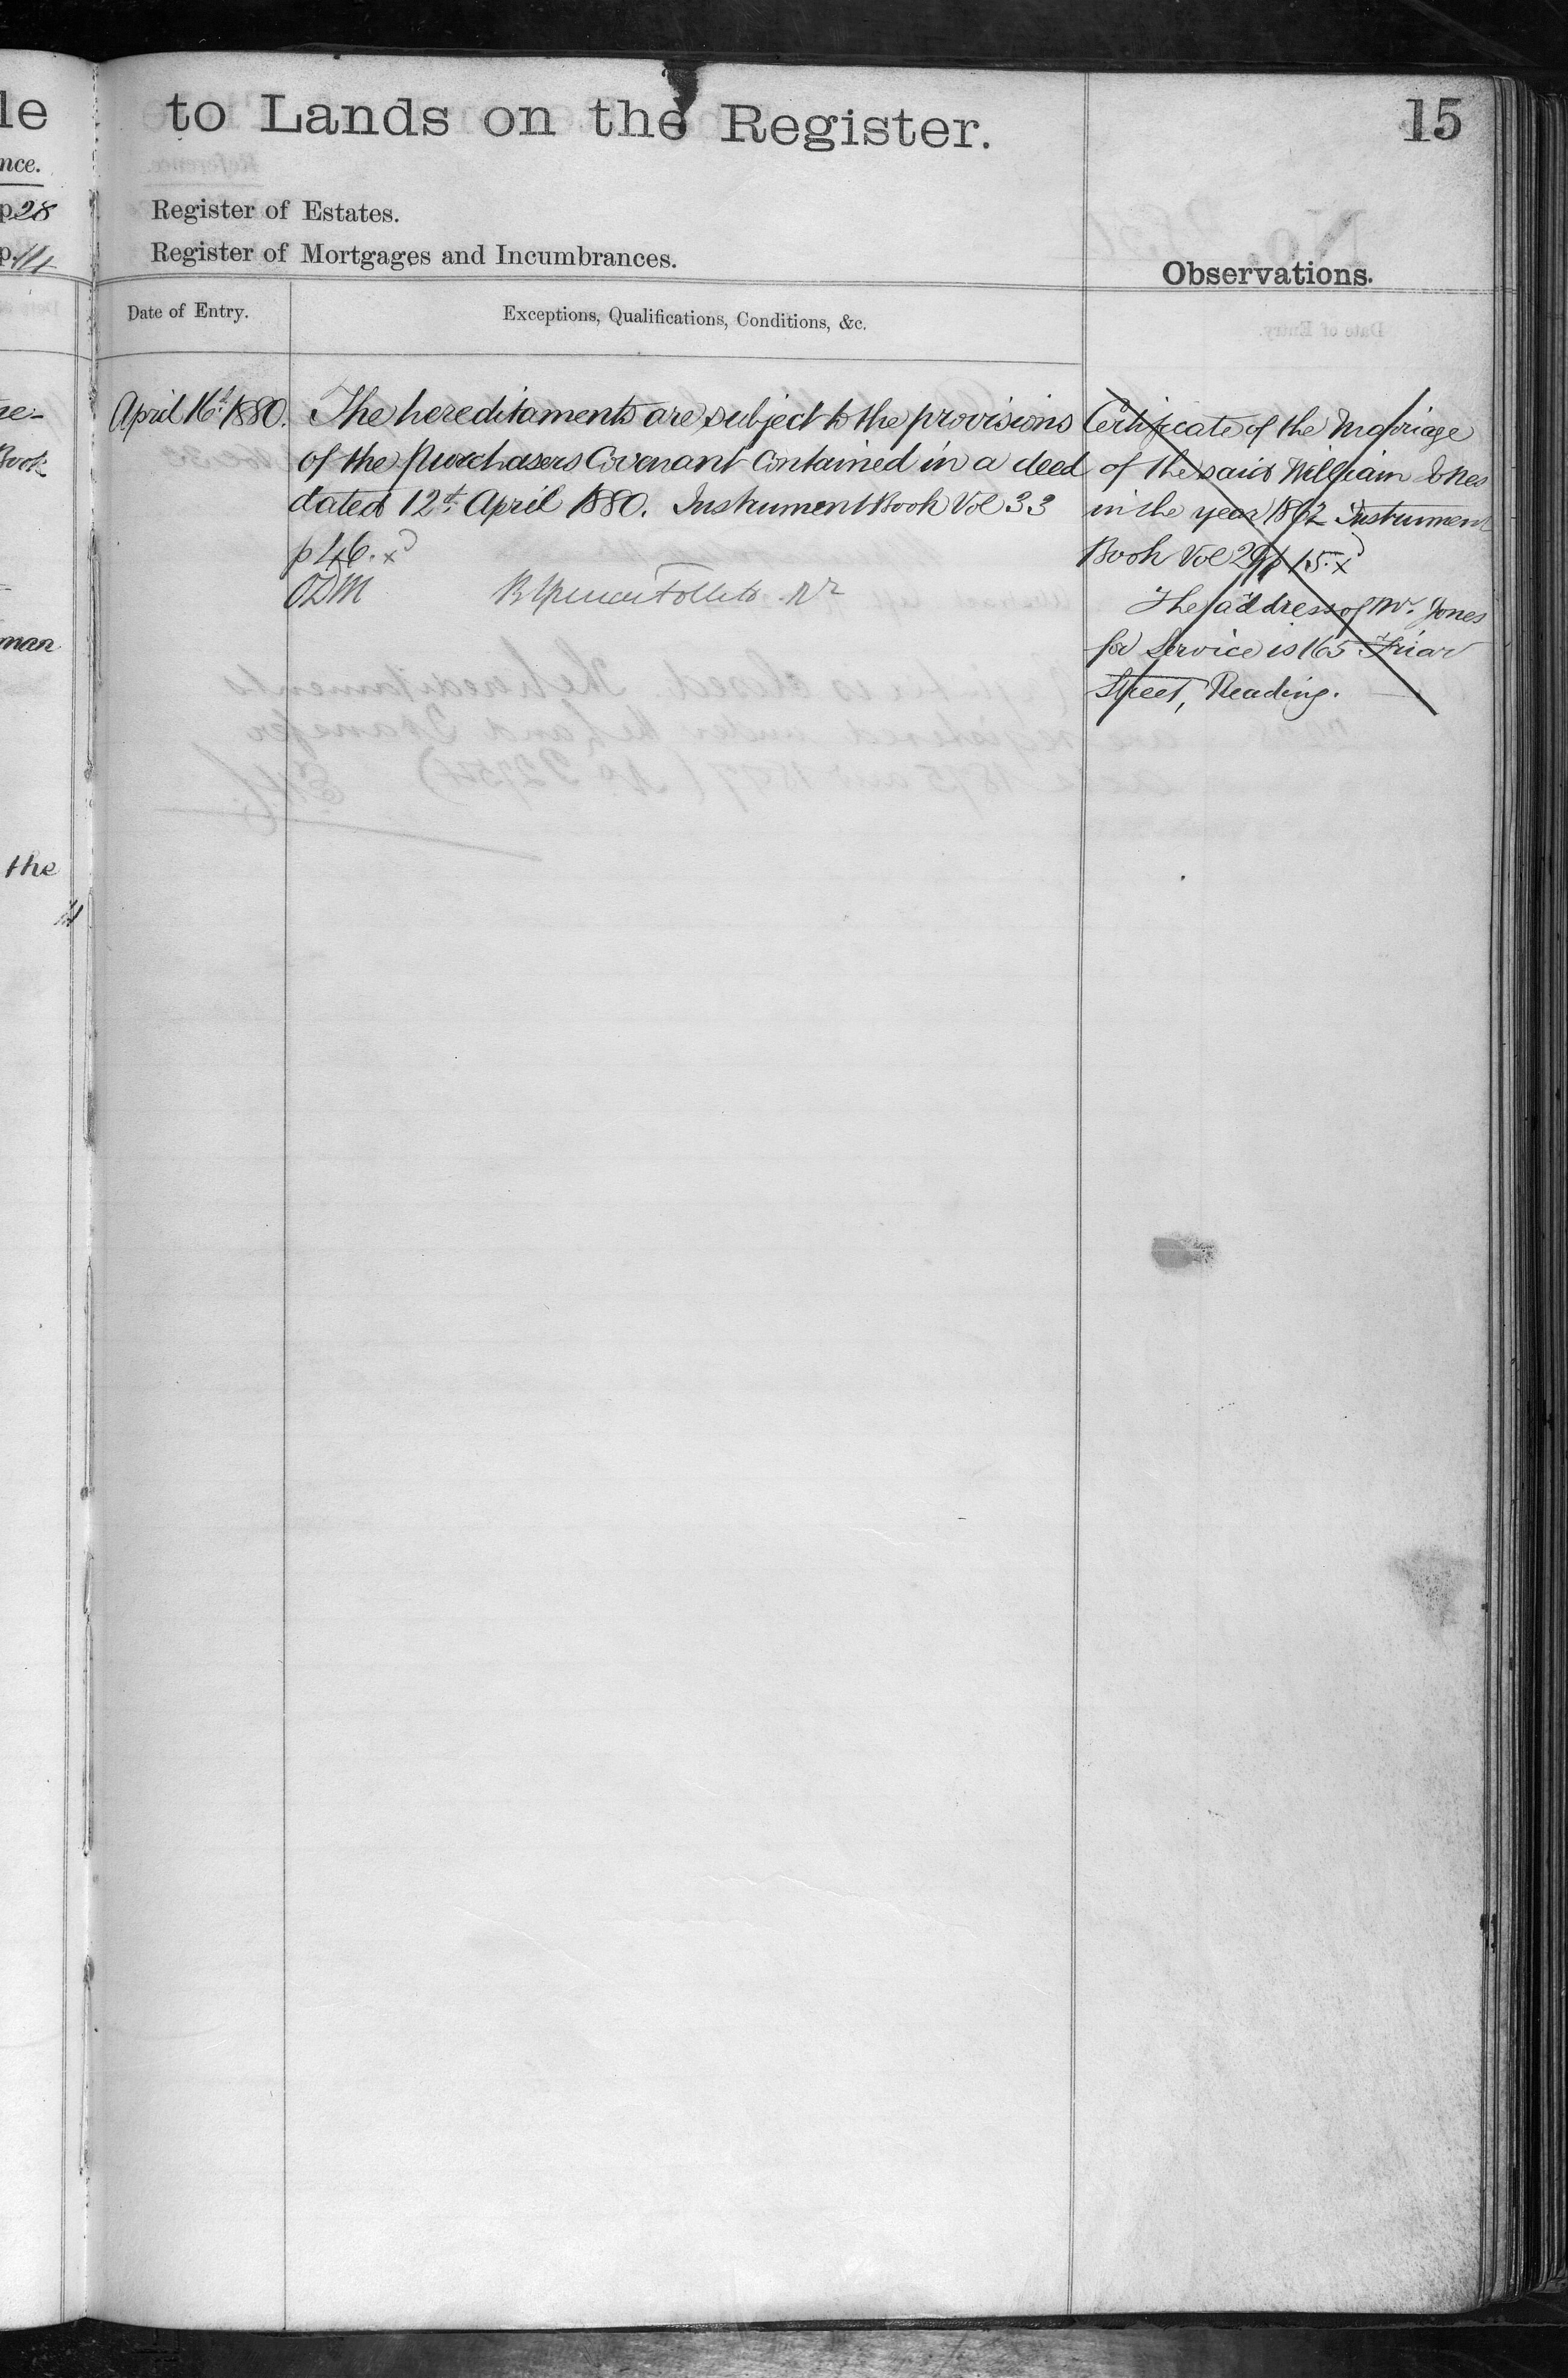 le
nce.
p. 28
p. 111
to Lands on the Register.
15
Register of Estates.
Register of Mortgages and Incumbrances.
Observations.
Date of Entry.
Exceptions, Qualifications, Conditions, &c.
se-
Book
man
the
April 16th 1880.
The hereditaments are subject to the provisions
of the Purchasers Covenant contained in a deed
dated 12th April 1880. Instrument Book Vol 33
p 46. x
Follett
Certificate of the Marriage
of the said William Jones
in the year 1862 Instrument
Book Vol 29 p 15. x
The address of Mr. Jones
for Service is 165 Friar
Street, Reading.